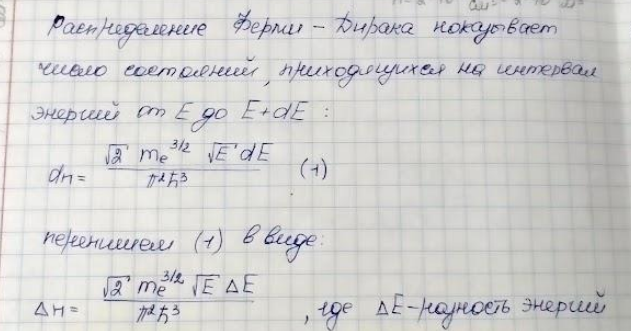 Распределение Ферми - Дирака показывает
число состояний, приходящихся на интервал
энергий от E до E+dE :
dn = √2 me^3/2 √E dE / π²ħ³ (1)
перепишем (1) в виде:
Δn = √2 me^3/2 √E ΔE / π²ħ³ , где ΔE - разность энергий